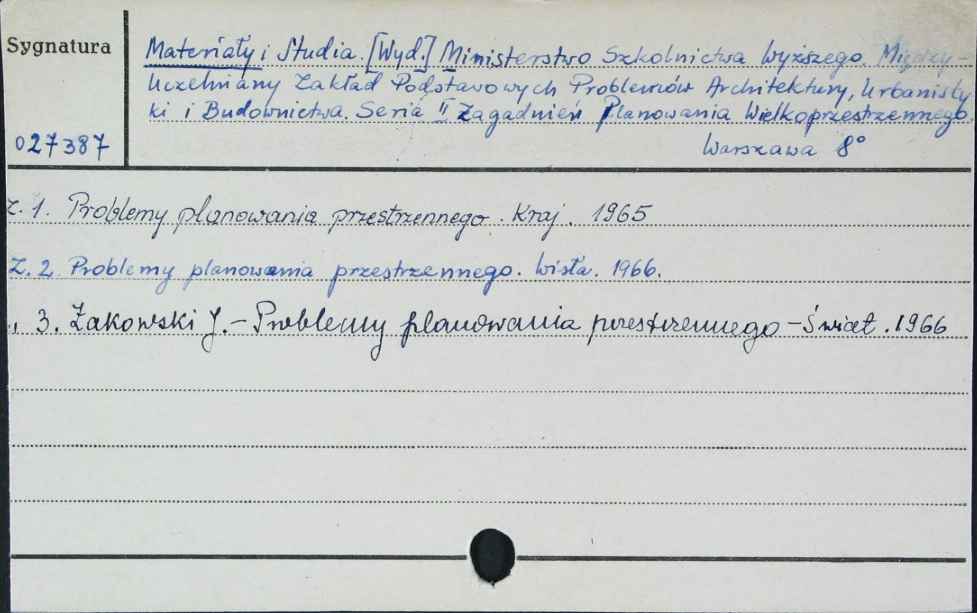 Sygnatura
027387
Materiały i Studia. [Wyd.] Ministerstwo Szkolnictwa Wyższego. Między-
uczelniany Zakład Podstawowych Problemów Architektury, Urbanisty
ki i Budownictwa. Seria II Zagadnień Planowania Wielkoprzestrzennego.
Warszawa 8°
Z. 1. Problemy planowania przestrzennego. Kraj. 1965
Z. 2. Problemy planowania przestrzennego. Wisła. 1966.
„ 3. Żakowski J. – Problemy planowania przestrzennego – Świat. 1966